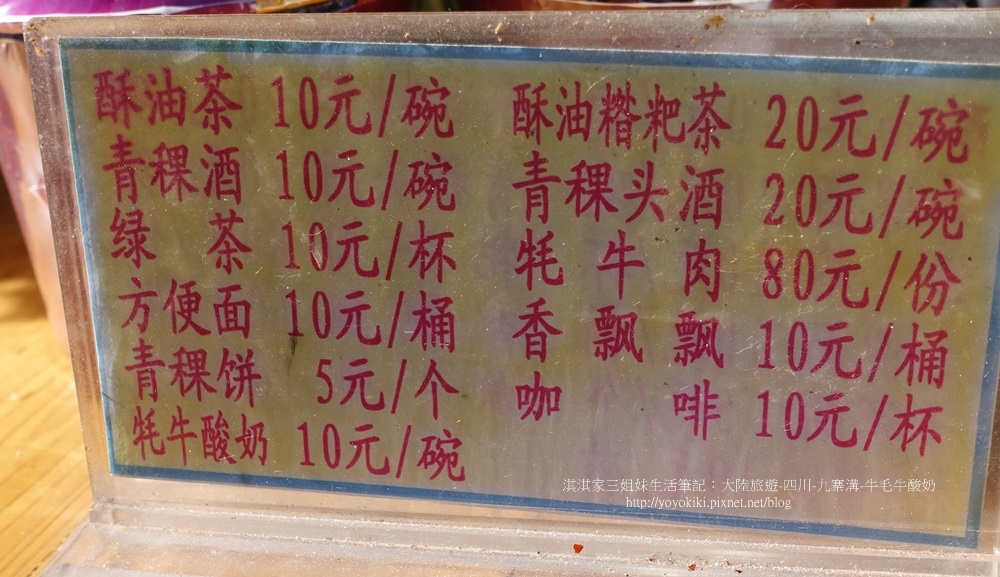 酥油茶 10元/碗
青稞酒 10元/碗
绿 茶 10元/杯
方便面 10元/桶
青稞饼 5元/个
牦牛酸奶 10元/碗
酥油糌粑茶 20元/碗
青稞头酒 20元/碗
牦 牛 肉 80元/份
香 飘 飘 10元/桶
咖 啡 10元/杯
淇淇家三姐妹生活筆記：大陸旅遊-四川-九寨溝-牛毛牛酸奶
http://yoyokiki.pixnet.net/blog